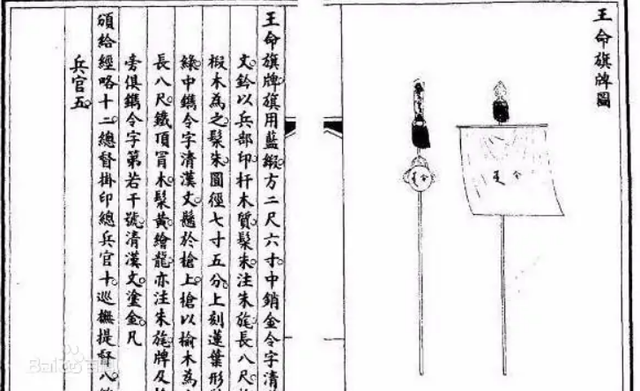 王命旗牌圖
令
令
王命旗牌旗用藍緞方二尺六寸中銷金令字清
文鈐以兵部印杆木質髹朱注朱旄長八尺
椴木為之髹朱圜徑七寸五分上刻蓮葉形
綠中鐫令字清漢文懸於槍上槍以榆木為
長八尺鐵頂冐木髹黃繪龍亦注朱旄牌及
旁俱鐫令字第若干號清漢文塗金凡
頒給經略十二總督掛印總兵官十巡撫提督八
兵官五